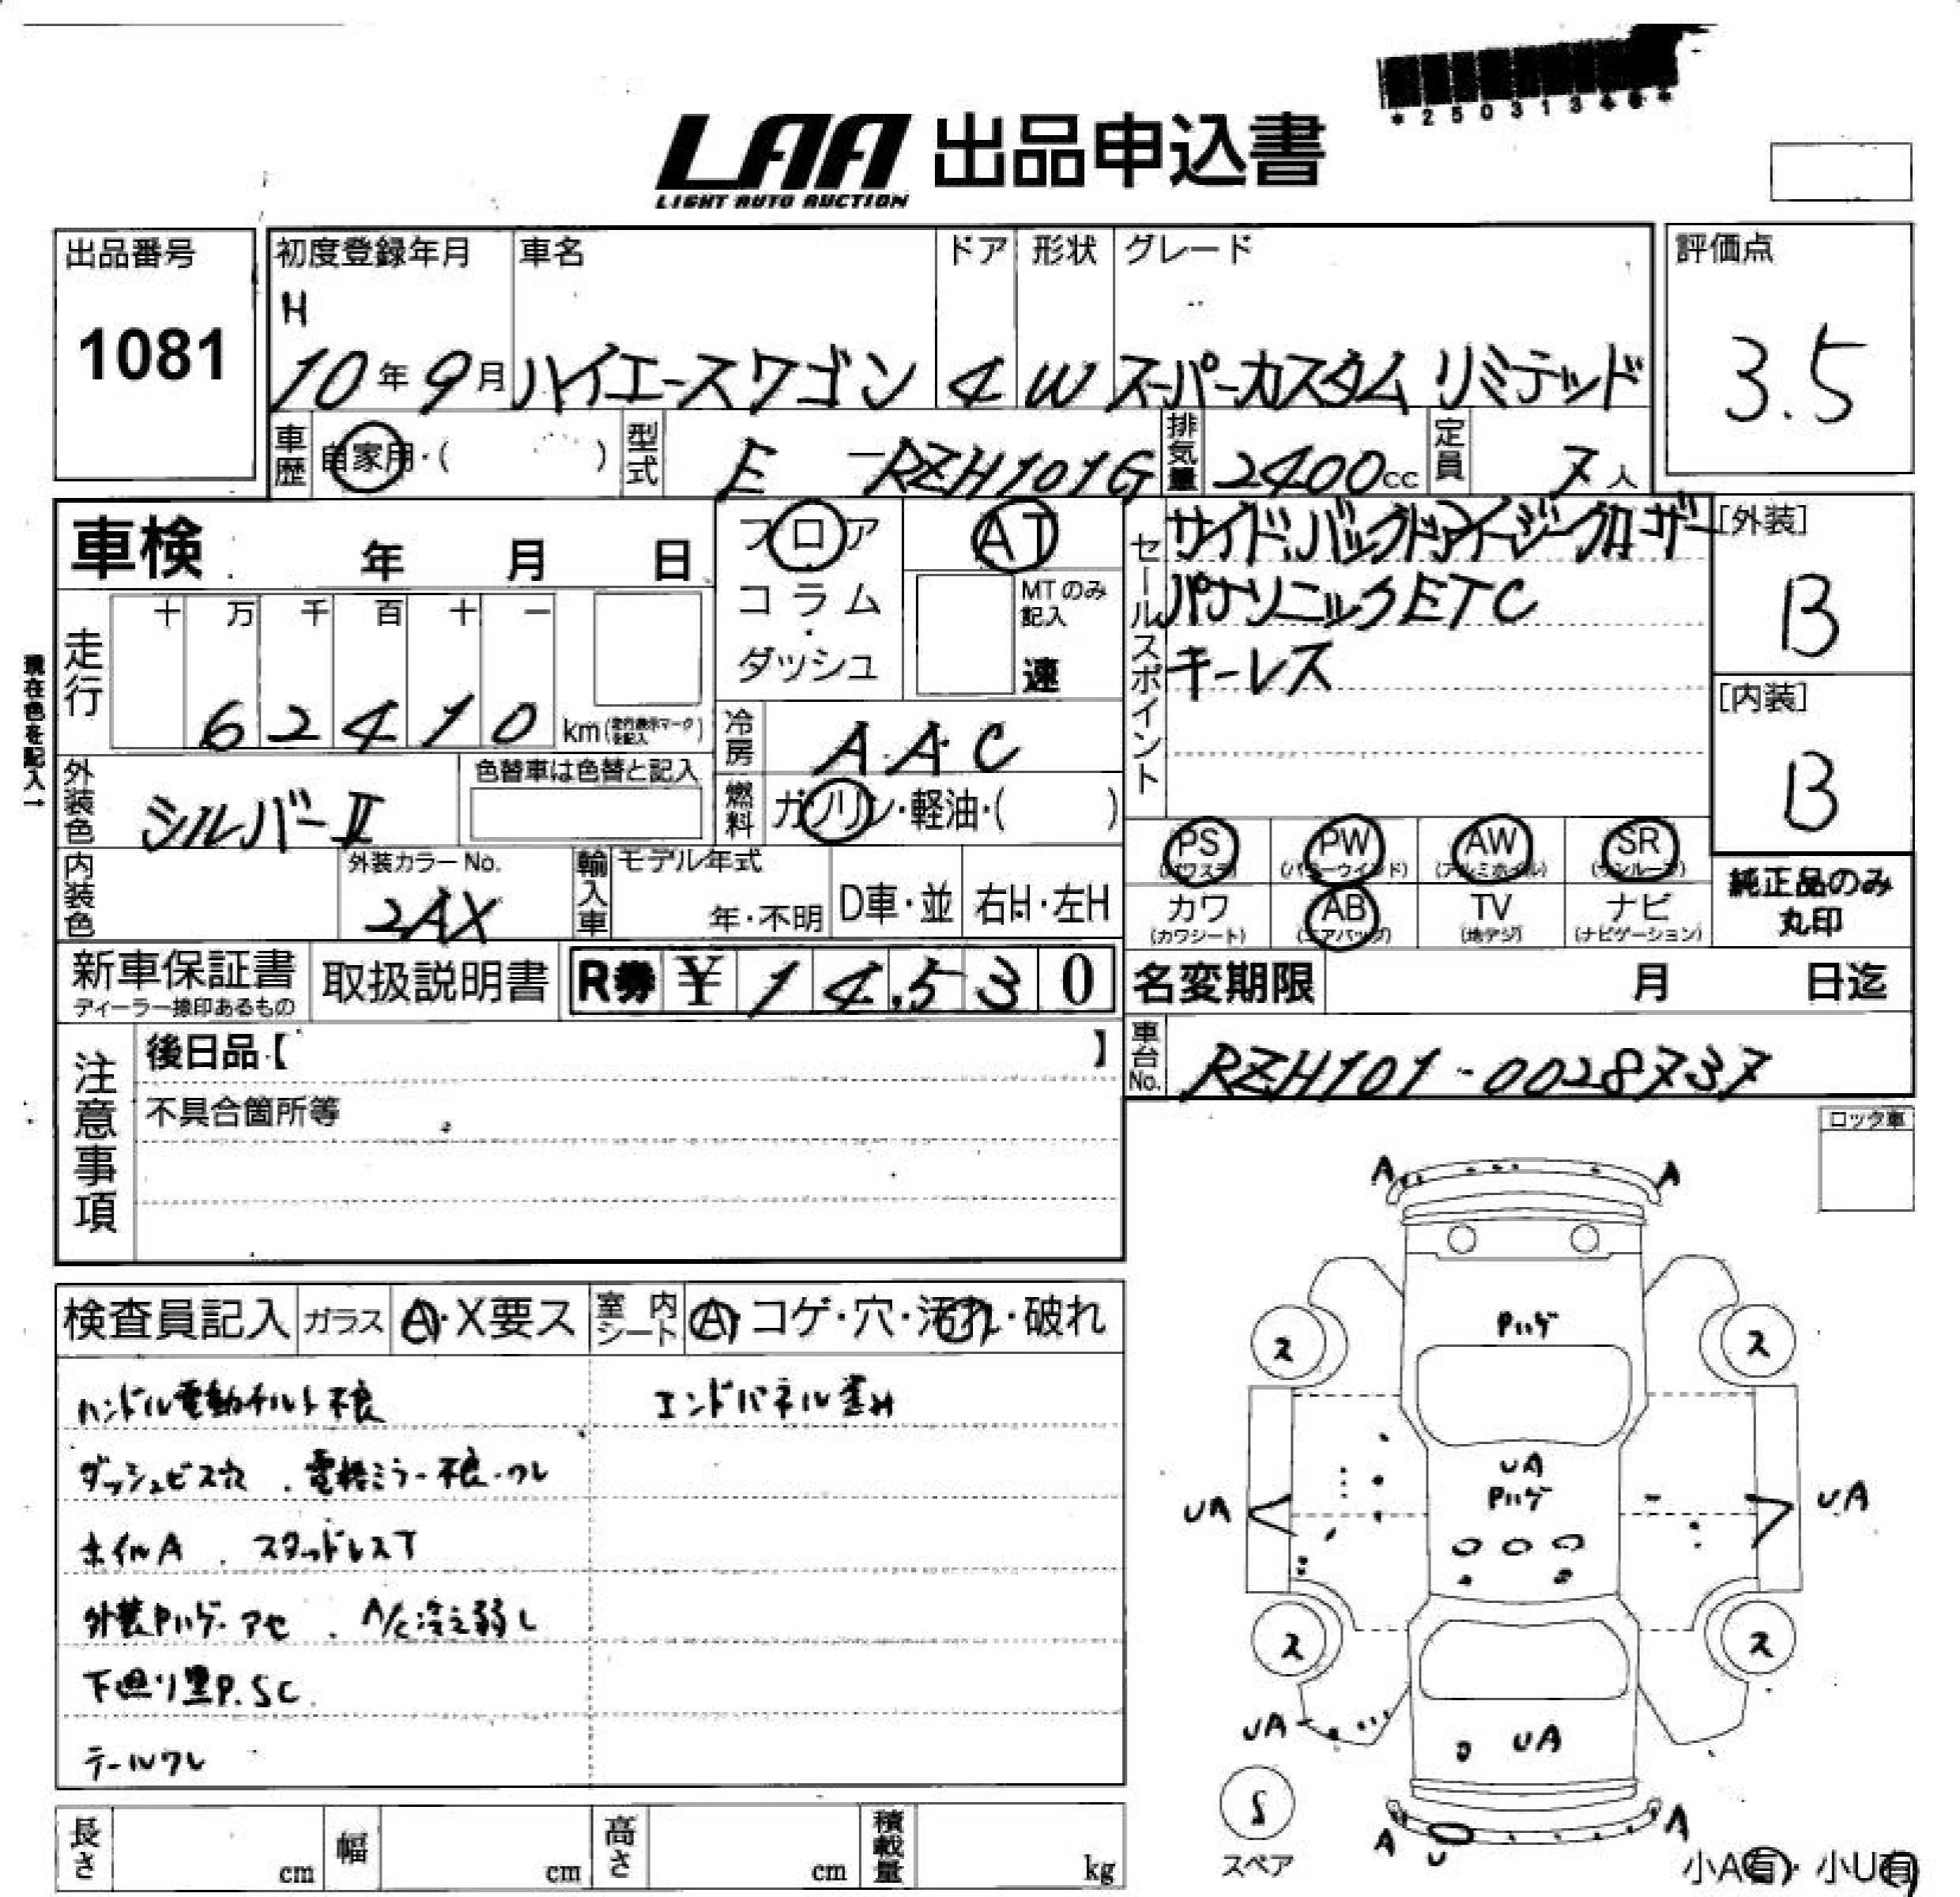 *2503134*
LAA 出品申込書
LIGHT AUTO AUCTION
出品番号
1081
初度登録年月
H
10年9月
車名
ハイエースワゴン
ドア
4
形状
W
グレード
スーパーカスタム リミテッド
評価点
3.5
車歴
自家用・( )
型式
E -RZH101G
排気量
2400cc
定員
7人
車検 年 月 日
フロア
コラム
・
ダッシュ
AT
MTのみ
記入
速
セールスポイント
サイド.バックドアイージークローザー
パナソニックETC
キーレス
[外装]
B
[内装]
B
現在色を記入→
走行
十 万 千 百 十 一
6 2 4 1 0
km(走行表示マークを記入)
冷房
AAC
外装色
シルバーⅡ
色替車は色替と記入
燃料
ガソリン・軽油・( )
PS
(パワステ)
PW
(パワーウインド)
AW
(アルミホイル)
SR
(サンルーフ)
カワ
(カワシート)
AB
(エアバッグ)
TV
(地デジ)
ナビ
(ナビゲーション)
純正品のみ
丸印
内装色
外装カラーNo.
2AX
輸入車
モデル年式
年・不明
D車・並
右H・左H
新車保証書
ディーラー捺印あるもの
取扱説明書
R券 ¥ 14,530
名変期限 月 日迄
車台No.
RZH101-0028737
注意事項
後日品【 】
不具合箇所等
ロック車
検査員記入
ガラス
A・X要ス
室内シート
A・コゲ・穴・汚れ・破れ
ハンドル電動チルト不良
エンドパネル歪み
ダッシュビス穴 . 電格ミラー不良.ワレ
ホイルA . スタッドレスT
外装Pハゲ.アセ . A/C冷え弱し
下廻り塗P.SC
テールワレ
A A
Pハゲ
ス ス
UA
Pハゲ
UA UA
ス ス
UA UA
S
スペア
A U A
小A有・小U有
長さ cm
幅 cm
高さ cm
積載量 kg